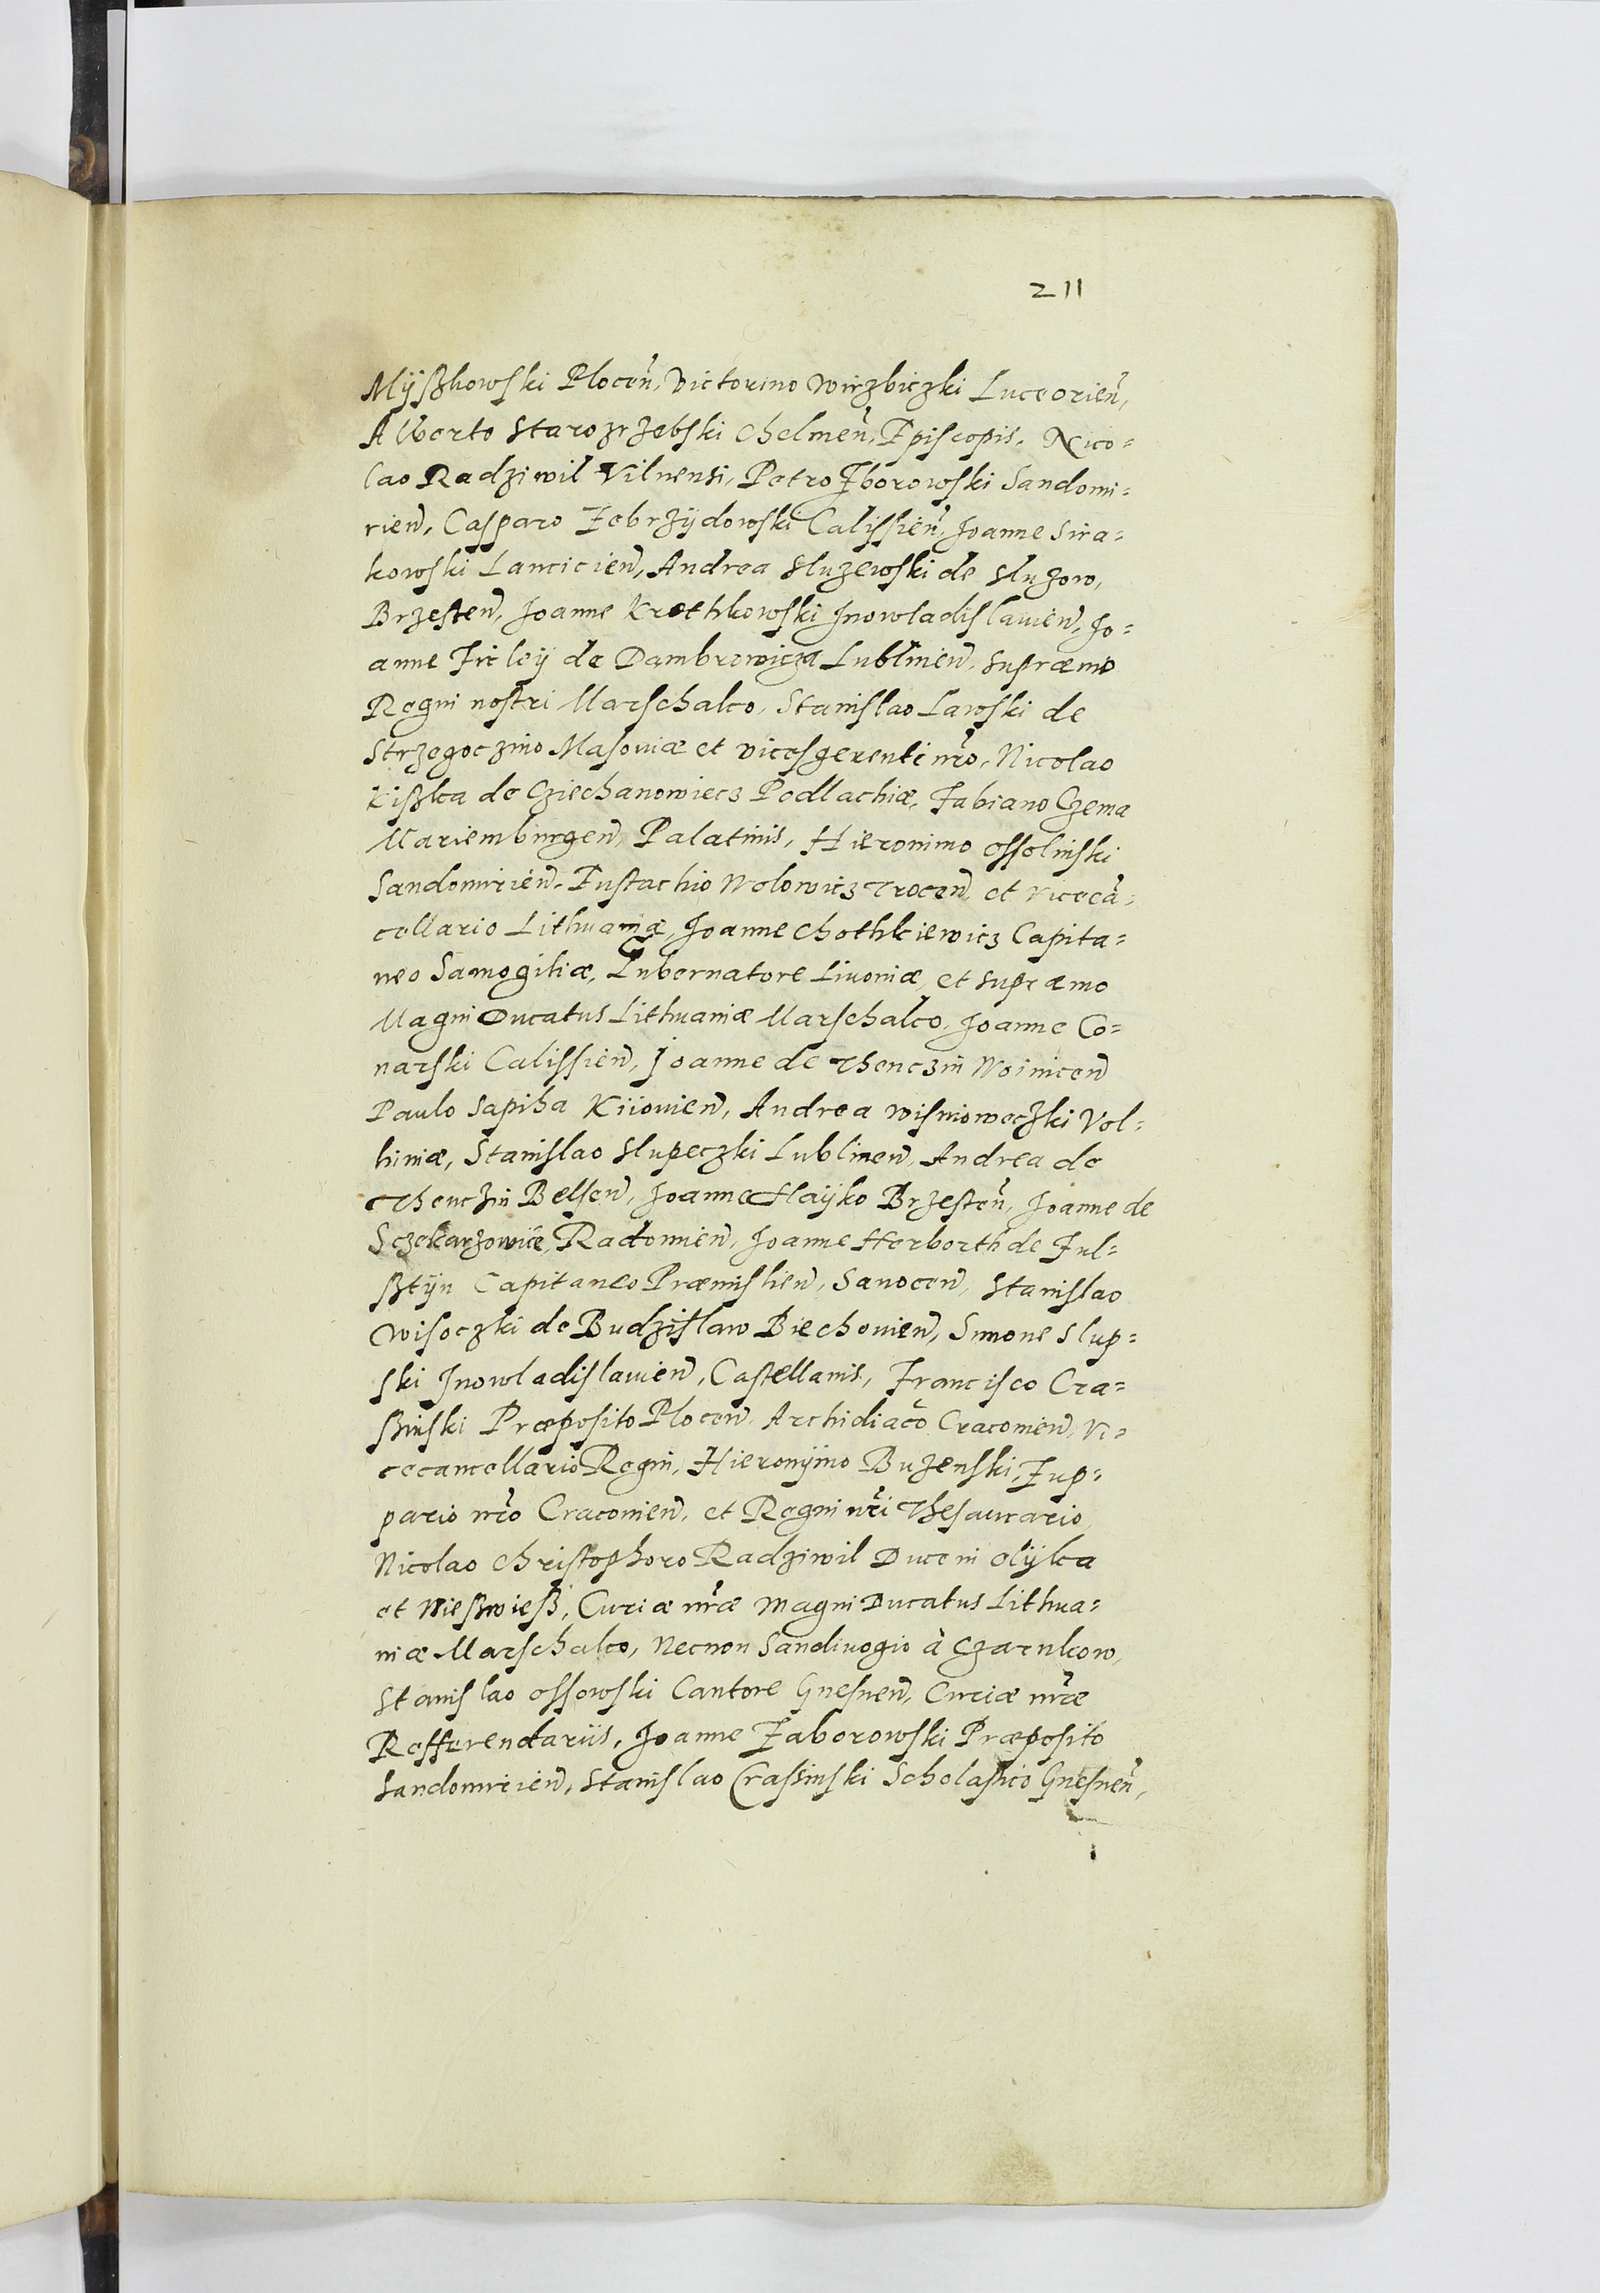 211
Mÿßkowski Plocen̄, Victorino Wirzbiczki Luceorien̄,
Alberto Starozrzebski Chelmen̄, Episcopis, Nico=
lao Radziwil Vilnensi, Petro Zborowski Sandomi=
rien̄, Casparo Zebrzÿdowski Calissien̄, Joanne Sira=
kowski Lancicien̄, Andrea Sluzewski de Sluzow,
Brzesten̄, Joanne Krothkowski Jnowladislauien̄, Jo=
anne Firleÿ de Dambrowicza Lublinen̄, supræmo
Regni nostri Marschalco, Stanislao Lawski de
Strzegoczino Masouiæ et vicesgerenti nr̄o, Nicolao
Kißka de Cziechanowiecz Podlachiæ, Fabiano Czema
Mariemburgen̄, Palatinis, Hieronimo Ossolinski
Sandomirien̄, Eustachio Wolowicz Trocen̄, et Vicecā=
cellario Lithuaniæ, Joanne Chothkiewicz Capita=
neo Samogitiæ, Gubernatore Liuoniæ, et supræmo
Magni Ducatus Lithuaniæ Marschalco, Joanne Co=
narski Calissien̄, Joanne de Thenczin Woinicen̄
Paulo Sapiha Kiiouien̄, Andrea Wisnioweczki Vol=
hiniæ, Stanislao Slupeczki Lublinen̄, Andrea de
Thenczin Belsen̄, Joanne Haÿko Brzesten̄, Joanne de
Sczekarzowice Radomien̄, Joanne Herborth de Ful=
ßtÿn Capitaneo Præmislien̄, Sanocen̄, Stanislao
Wisoczki de Budzislaw Biechouien̄, Simone Slup=
ski Jnowladislauien̄, Castellanis, Francisco Cra=
ßinski Præposito Plocen̄, Archidiac̄o Cracouien̄, Vi=
cecancellario Regni, Hieronÿmo Buzenski, Zup=
pario nr̄o Cracouien̄, et Regni nr̄i Thesaurario,
Nicolao Christophoro Radziwil Duce in Olÿka
et Nießwieß, Curiæ nr̄æ Magni Ducatus Lithua=
niæ Marschalco, Necnon Sandiuogio à Czarnkow,
Stanislao Ossowski Cantore Gnesnen̄, Curiæ nr̄æ
Refferendariis, Joanne Zaborowski Præposito
Sandomirien̄, Stanislao Crassinski Scholastico Gnesnen̄,